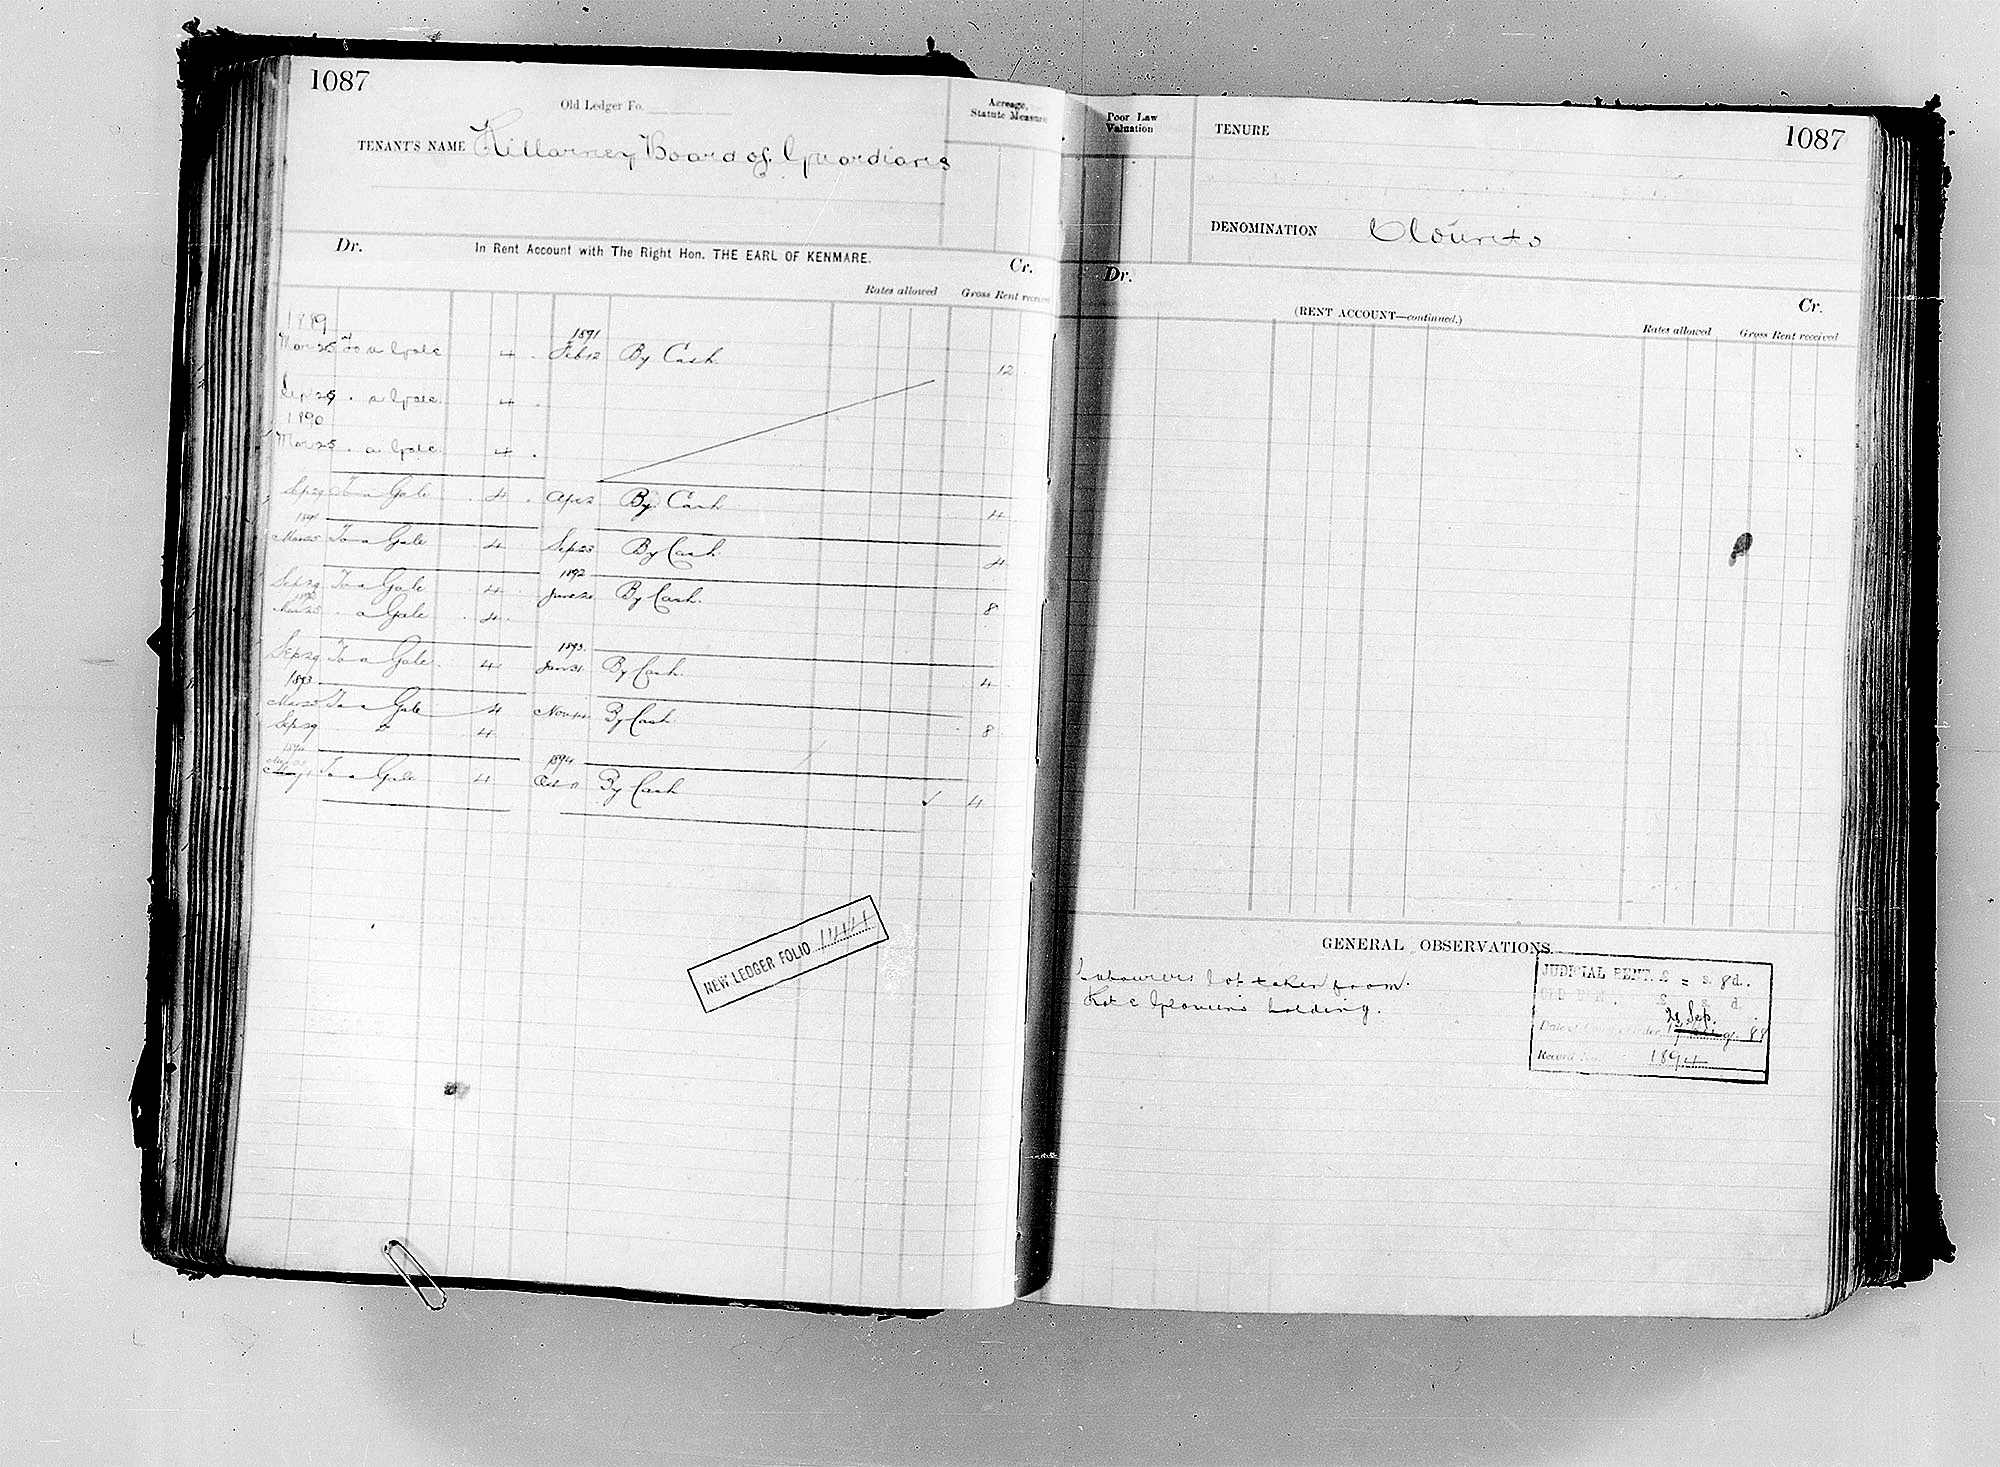 1087
Old Ledger Fo.
TENANT'S NAME Killarney Board of Guardians
Acreage, Statute Measure
Dr. In Rent Account with The Right Hon. THE EARL OF KENMARE. Cr.
Rates allowed Gross Rent received
1889 1891
Mar 25 To a Gale 4 Feb 12 By Cash 12
Sep 29 . a Gale 4
1890
Mar 25 . a Gale 4
Sep 29 To a Gale 4 Apr 2 By Cash 4
1891
Mar 25 To a Gale 4 Sep 23 By Cash 4
1892
Sep 29 To a Gale 4 June 20 By Cash 8
1892
Mar 25 . a Gale 4
1893
Sep 29 To a Gale 4 Jan 31 By Cash 4
1893
Mar 25 To a Gale 4 Nov 14 By Cash 8
Sep 29 4
1894 1894
To a Gale 4 Oct By Cash 4
NEW LEDGER FOLIO
Poor Law Valuation
TENURE
1087
DENOMINATION Clounts
Dr. (RENT ACCOUNT—continued.) Cr.
Rates allowed Gross Rent received
GENERAL OBSERVATIONS.
Labourers lot taken from
holding.
JUDICIAL RENT. £ = s. 8d.
OLD RENT. £ s. d.
29 Sep.
Date of 88
Record No. 1894